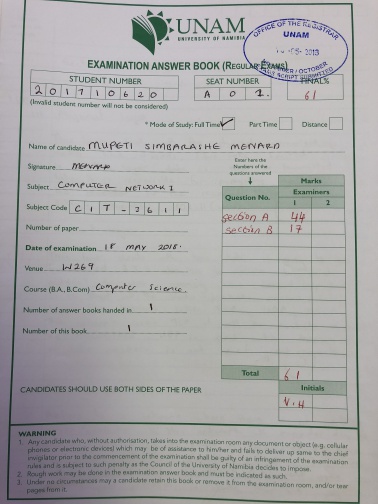 UNAM
UNIVERSITY OF NAMIBIA
OFFICE OF THE REGISTRAR
UNAM
EXAMINATION ANSWER BOOK (REGULAR EXAMS)
STUDENT NUMBER
201710620
SEAT NUMBER
A 0 1.
FINAL%
61
(Invalid student number will not be considered)
* Mode of Study: Full Time ✓ Part Time Distance
Name of candidate MUPETI SIMBARASHE MENARD
Signature MENARD
Subject COMPUTER NETWORK 1
Subject Code CIT-3611
Number of paper
Date of examination 18 MAY 2018.
Venue W269
Course (B.A., B.Com) Computer Science
Number of answer books handed in 1
Number of this book 1
Enter here the
Numbers of the
questions answered
Marks
Question No.
Examiners
1 2
Section A 44
Section B 17
Total 61
Initials
V.H
CANDIDATES SHOULD USE BOTH SIDES OF THE PAPER
WARNING
1. Any candidate who, without authorisation, takes into the examination room any document or object (e.g. cellular
phones or electronic devices) which may be of assistance to him/her and fails to deliver up same to the chief
invigilator prior to the commencement of the examination shall be guilty of an infringement of the examination
rules and is subject to such penalty as the Council of the University of Namibia decides to impose.
2. Rough work may be done in the examination answer book and must be indicated as such.
3. Under no circumstances may a candidate retain this book or remove it from the examination room, and/or tear
pages from it.